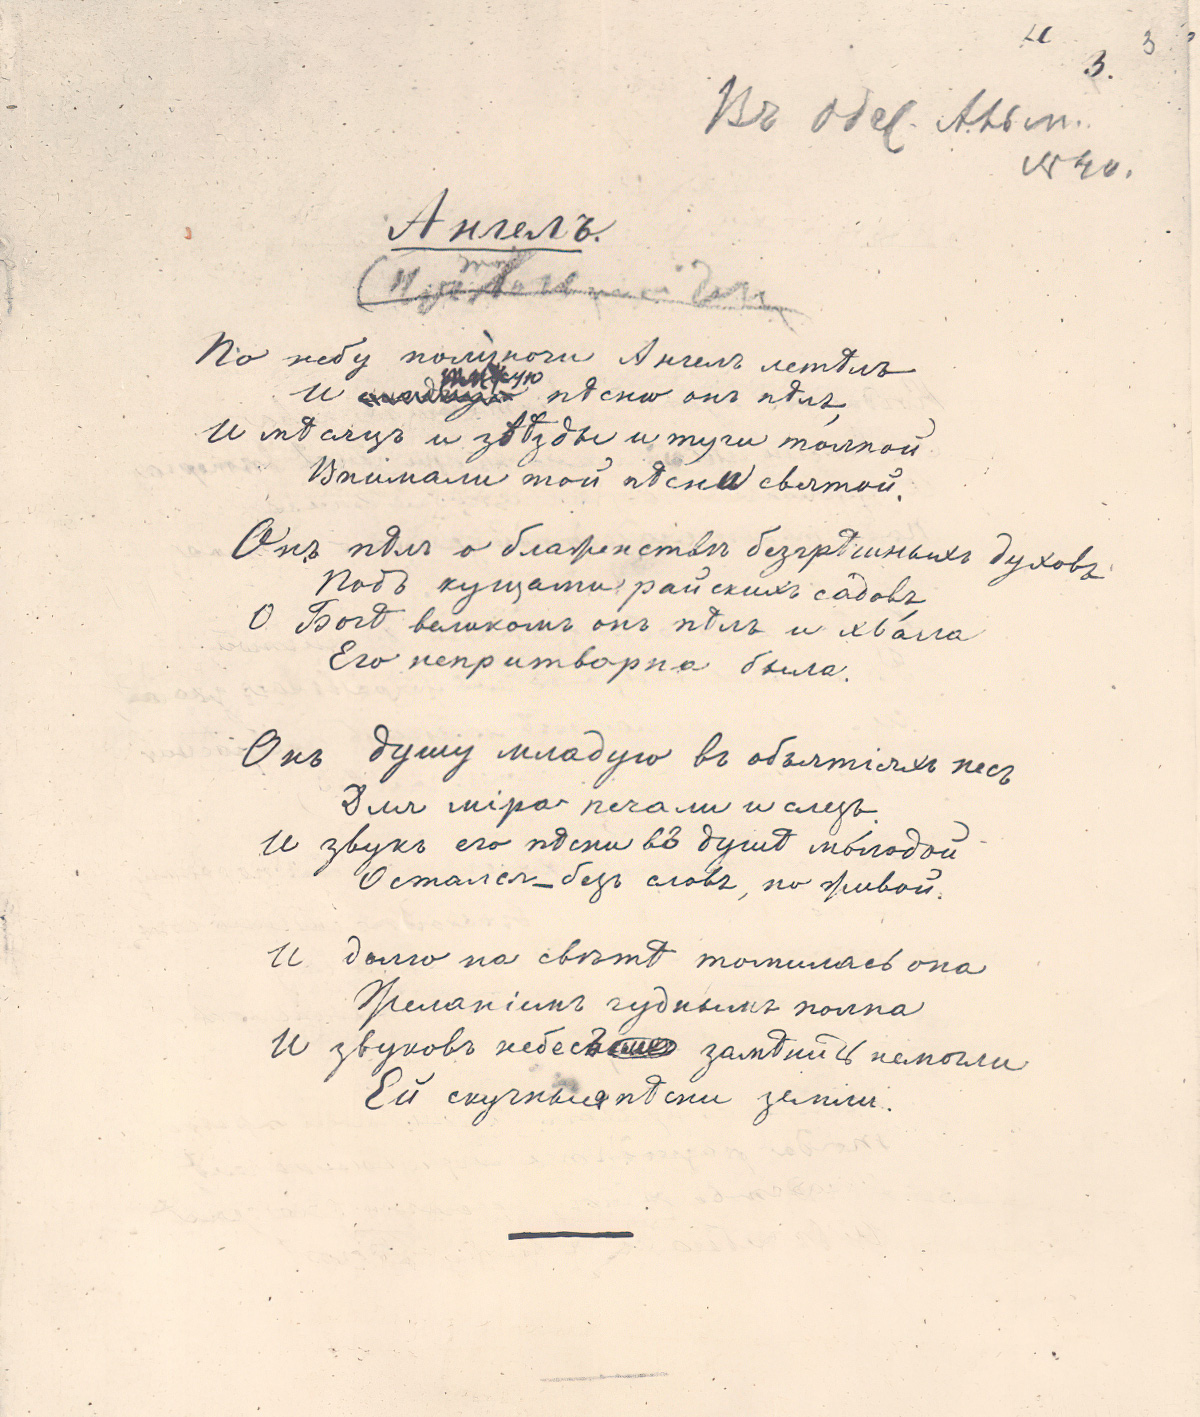 3
3.
Въ Одес. Альм.
1840.
Ангелъ.
По небу полуночи Ангелъ летѣлъ
И тихую пѣсню онъ пѣлъ,
И мѣсяцъ и звѣзды и тучи толпой
Внимали той пѣсни святой.
Онъ пѣлъ о блаженствѣ безгрѣшныхъ духовъ
Подъ кущами райскихъ садовъ,
О Богѣ великомъ онъ пѣлъ и хвала
Его непритворна была.
Онъ душу младую въ объятіяхъ несъ
Для міра печали и слезъ.
И звукъ его пѣсни въ душѣ молодой
Остался – безъ словъ, но живой.
И долго на свѣтѣ томилась она
Желаніемъ чуднымъ полна
И звуковъ небесъ замѣнить немогли
Ей скучныя пѣсни земли.